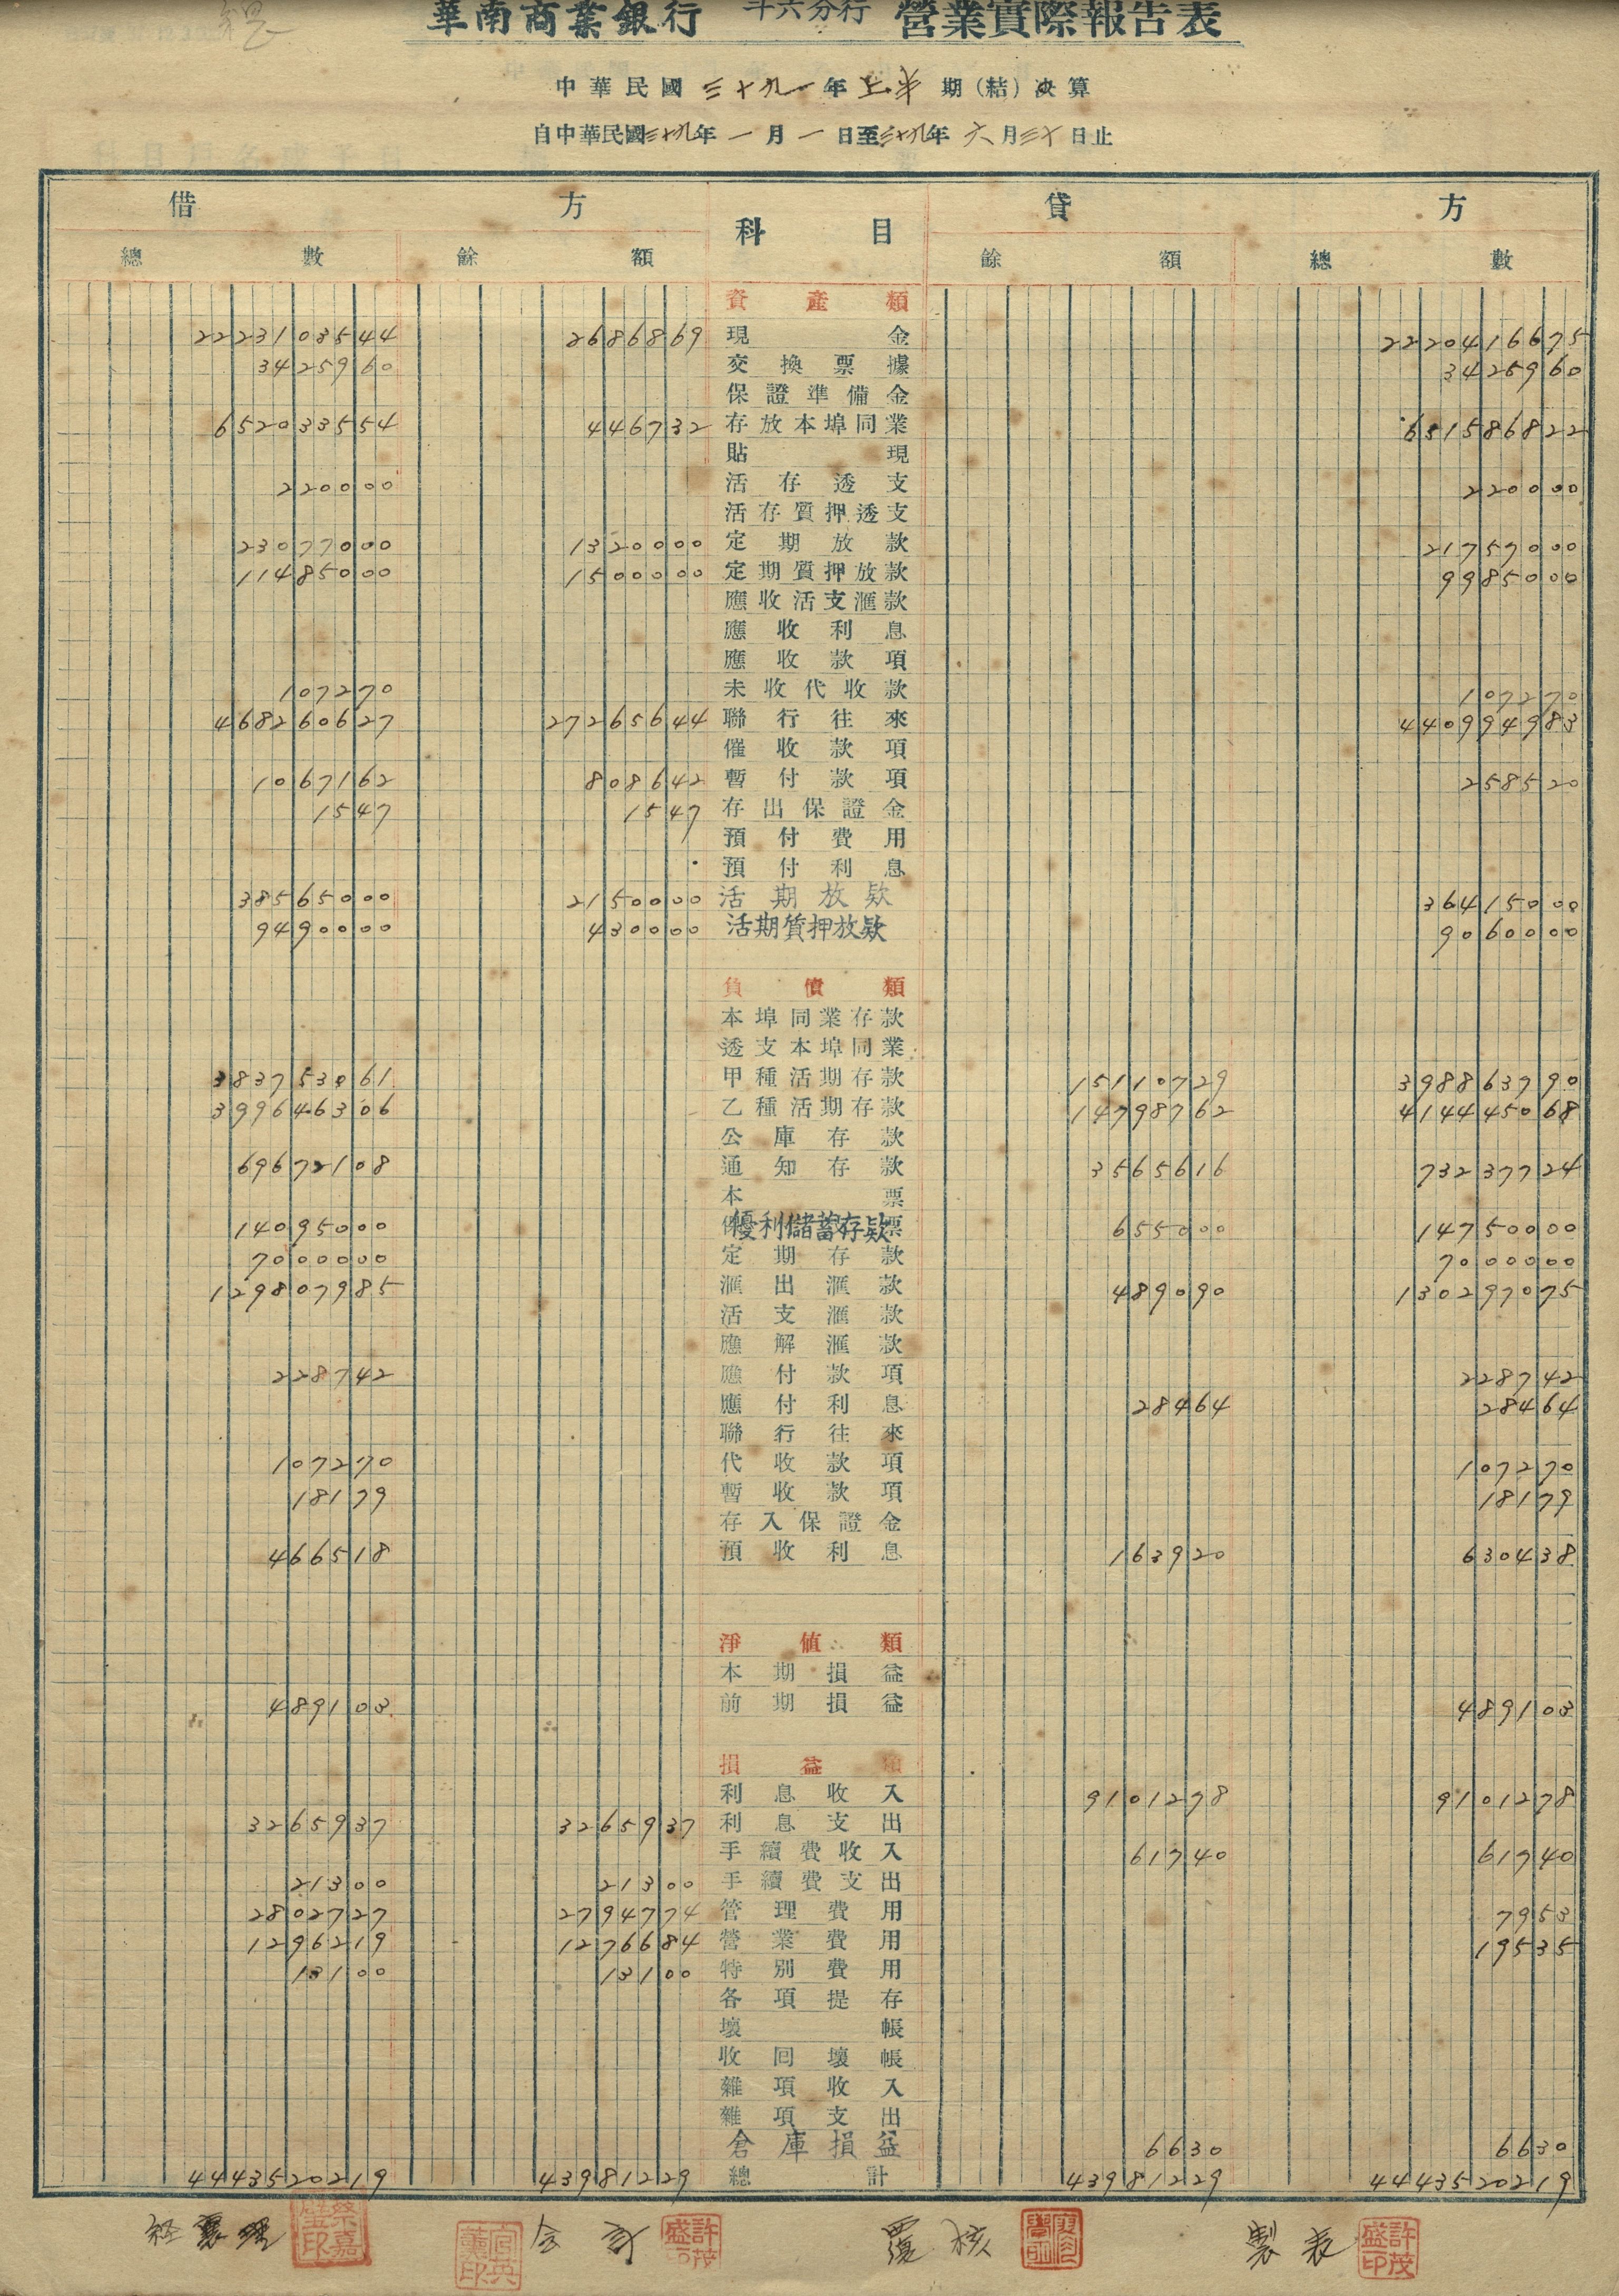 華南商業銀行 斗六分行 營業實際報告表
中華民國 三十九 年 上半 期(結)決算
自中華民國三十九年 一 月 一 日至三十九年 六 月三十日止
借 方 科 目 貸 方
總 數 餘 額 餘 額 總 數
資產類
2223103544 2686869 現金 2220416675
3425960 交換票據 3425960
保證準備金
652033554 446732 存放本埠同業 651586822
貼現
220000 活存透支 220000
活存質押透支
23077000 1320000 定期放款 21757000
11485000 1500000 定期質押放款 9985000
應收活支滙款
應收利息
應收款項
107270 未收代收款 107270
468260627 27265644 聯行往來 440994983
催收款項
1067162 808642 暫付款項 258520
1547 1547 存出保證金
預付費用
預付利息
38565000 2150000 活期放欵 36415000
9490000 430000 活期質押放欵 9060000
負債類
本埠同業存款
透支本埠同業
383753061 甲種活期存款 15110729 398863790
399646306 乙種活期存款 14798762 414445068
公庫存款
69672108 通知存款 3565616 73237724
本票
14095000 優利儲蓄存欵 655000 14750000
7000000 定期存款 7000000
129807985 滙出滙款 489090 130297075
活支滙款
應解滙款
228742 應付款項 228742
應付利息 28464 28464
聯行往來
107270 代收款項 107270
18179 暫收款項 18179
存入保證金
466518 預收利息 163920 630438
淨值類
本期損益
489103 前期損益 489103
損益類
利息收入 9101278 9101278
3265937 3265937 利息支出
手續費收入 61740 61740
21300 21300 手續費支出
2802727 2794774 管理費用 7953
1296219 1276684 營業費用 19535
13100 13100 特別費用
各項提存
壞帳
收回壞帳
雜項收入
雜項支出
倉庫損益 6630 6630
4443520219 43981229 總計 43981229 4443520219
經襄理 會計 覆核 製表
許茂盛印 許茂盛印